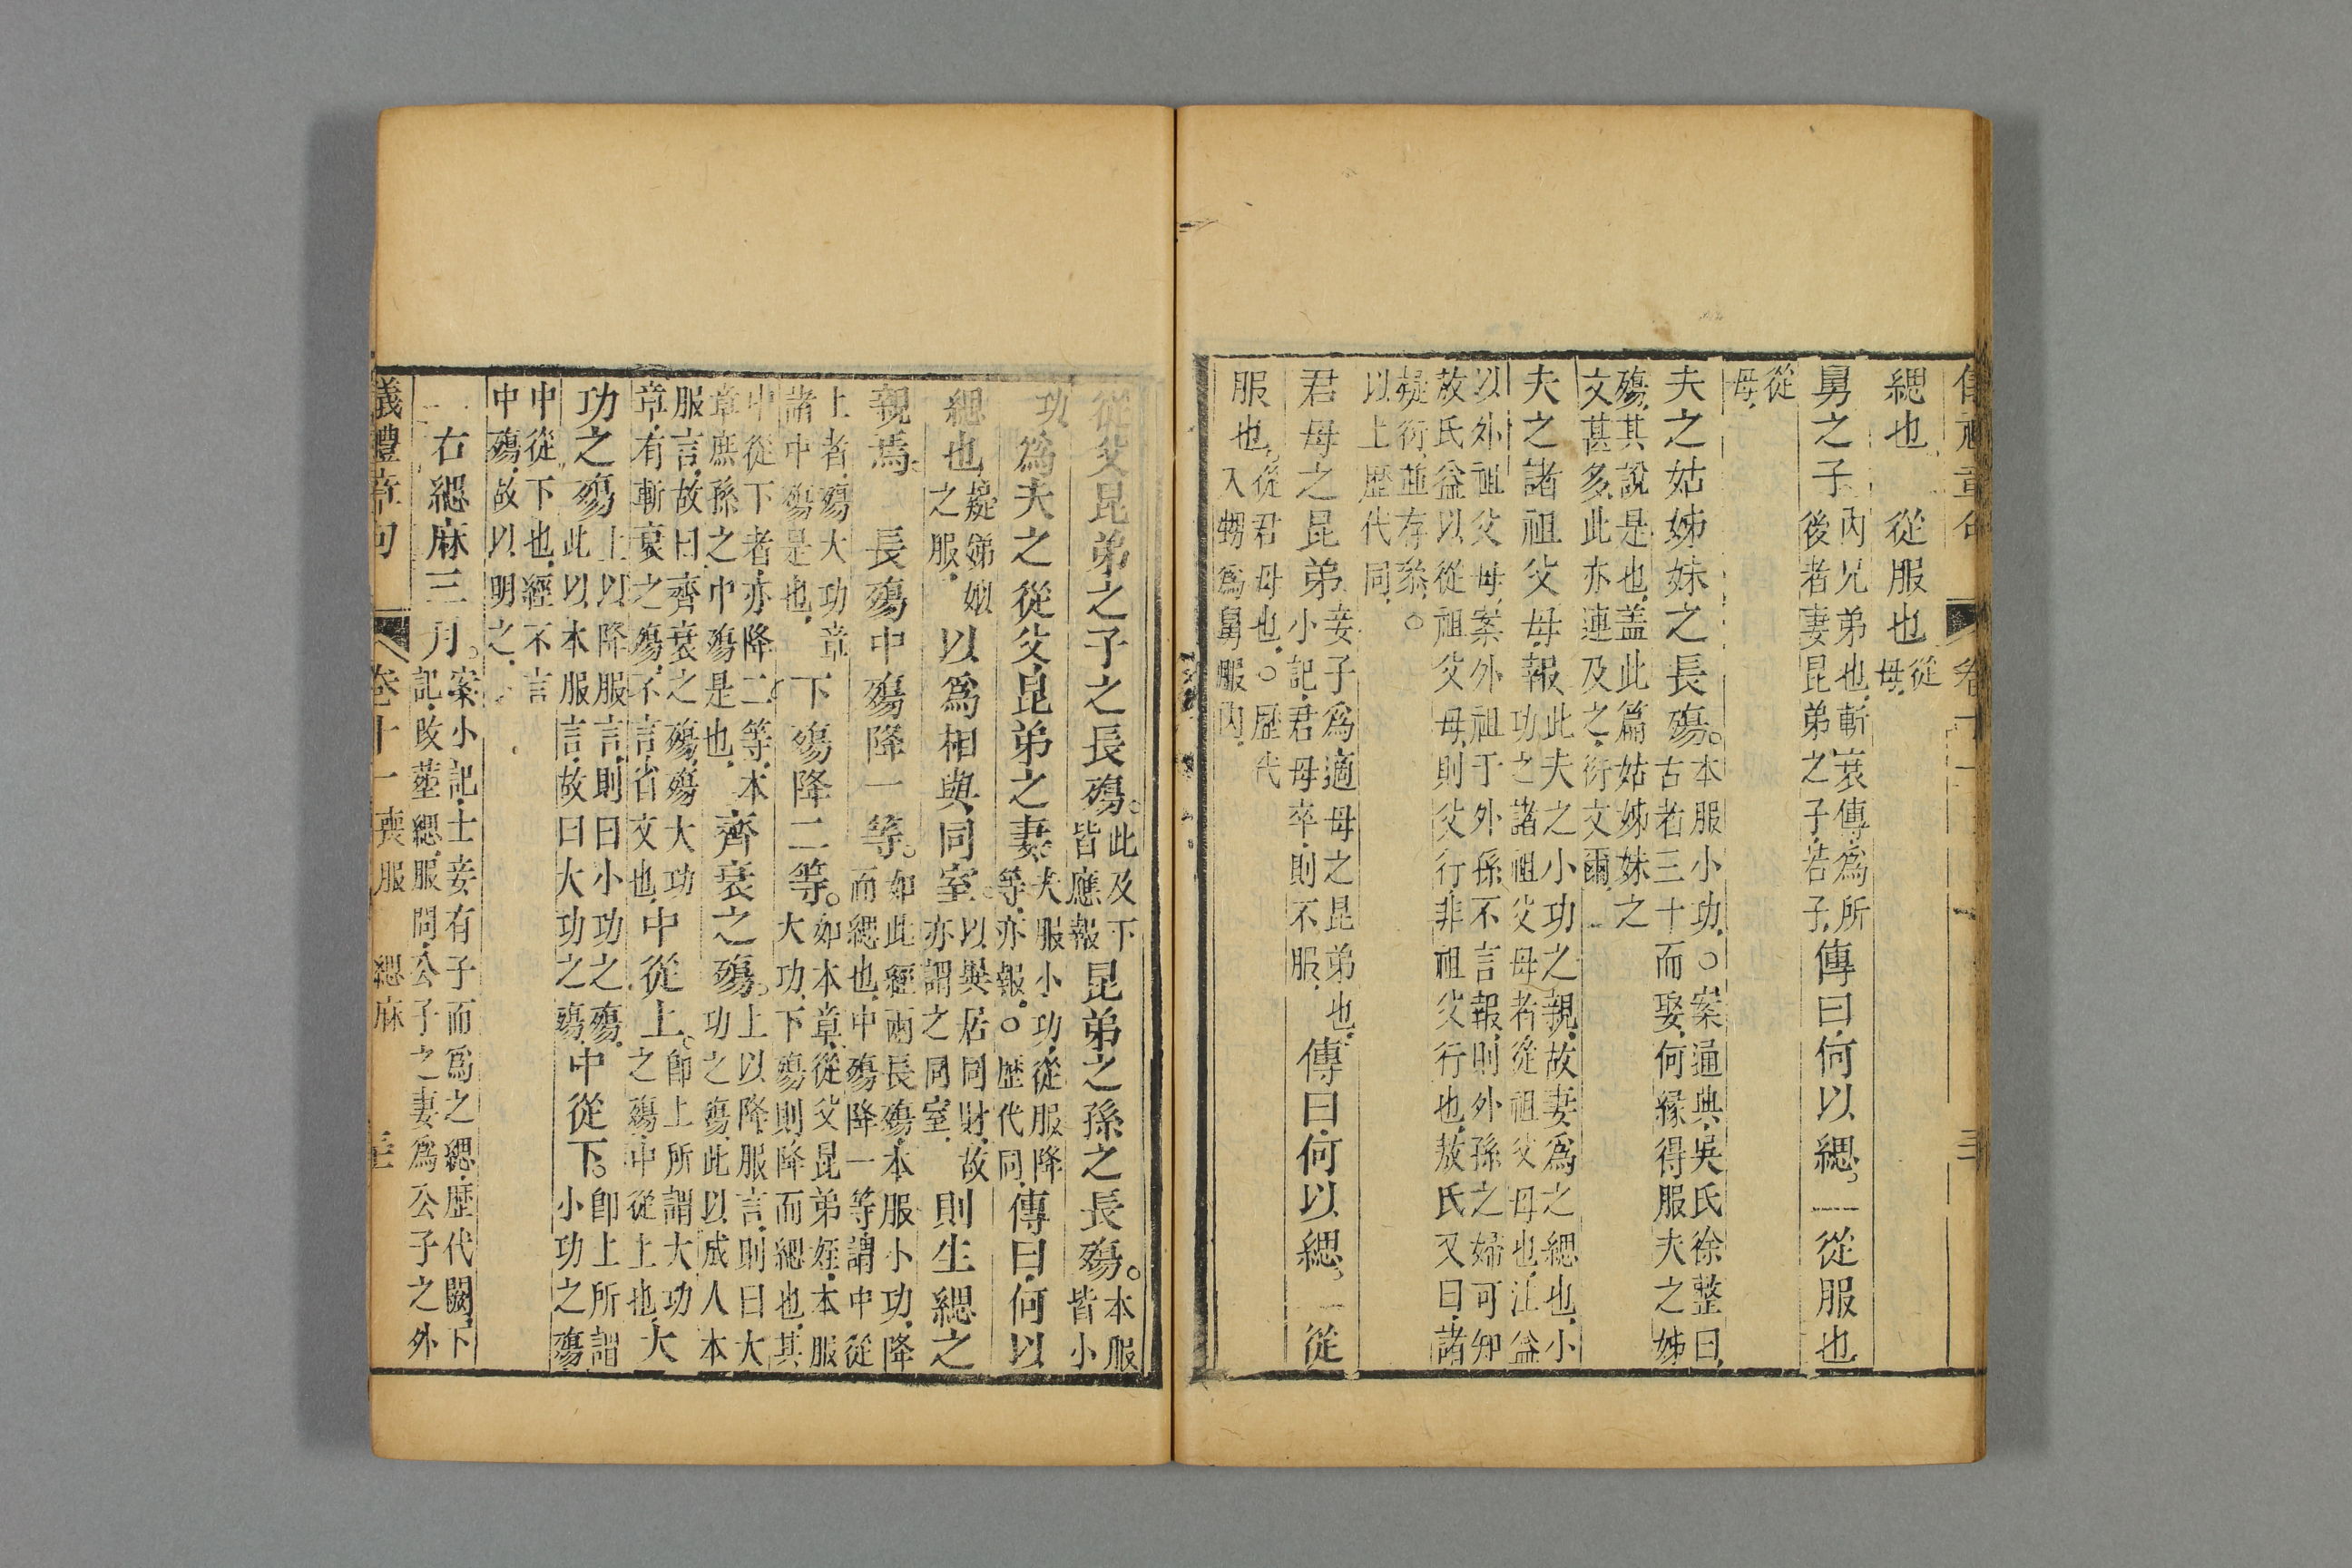 緦也從服也從
母
舅之子內兄弟也斬衰傳為所
後者妻昆弟之子若子傳曰何以緦從服也
從
母
夫之姑姊妹之長殤本服小功○案通典吳氏徐整曰
古者三十而娶何緣得服夫之姊
殤其說是也盖此篇姑姊妹之
文甚多此亦連及之衍文爾
夫之諸祖父母報此夫之小功之親故妻為之緦也小
功之諸祖父母者從祖父母也注益
以外祖父母案外祖于外孫不言報則外孫之婦可知
敖氏益以從祖父母則父行非祖父行也敖氏又曰諸
疑衍並存叅○
以上歷代同
君母之昆弟妾子為適母之昆弟也
小記君母卒則不服傳曰何以緦從
服也從君母也○歷代
入甥為舅服內
從父昆弟之子之長殤此及下
皆應報昆弟之孫之長殤本服
皆小
功為夫之從父昆弟之妻夫服小功從服降
等亦報○歷代同傳曰何以
緦也疑娣姒
之服以為相與同室以與居同財故
亦謂之同室則生緦之
親焉長殤中殤降一等如此經兩長殤本服小功降
而緦也中殤降一等謂中從
上者殤大功章
諸中殤是也下殤降二等如本章從父昆弟姪本服
大功下殤則降而緦也其
中從下者亦降二等本
章庶孫之中殤是也齊衰之殤上以降服言則曰大
功之殤此以成人本
服言故曰齊衰之殤殤大功
章有斬衰之殤不言省文也中從上即上所謂大功
之殤中從上也大
功之殤上以降服言則曰小功之殤
此以本服言故曰大功之殤中從下即上所謂
小功之殤
中從下也經不言
中殤故以明之
右緦麻三月案小記士妾有子而為之緦歷代闕下
記改葬緦服問公子之妻為公子之外
儀禮章句 卷十一 喪服 緦麻